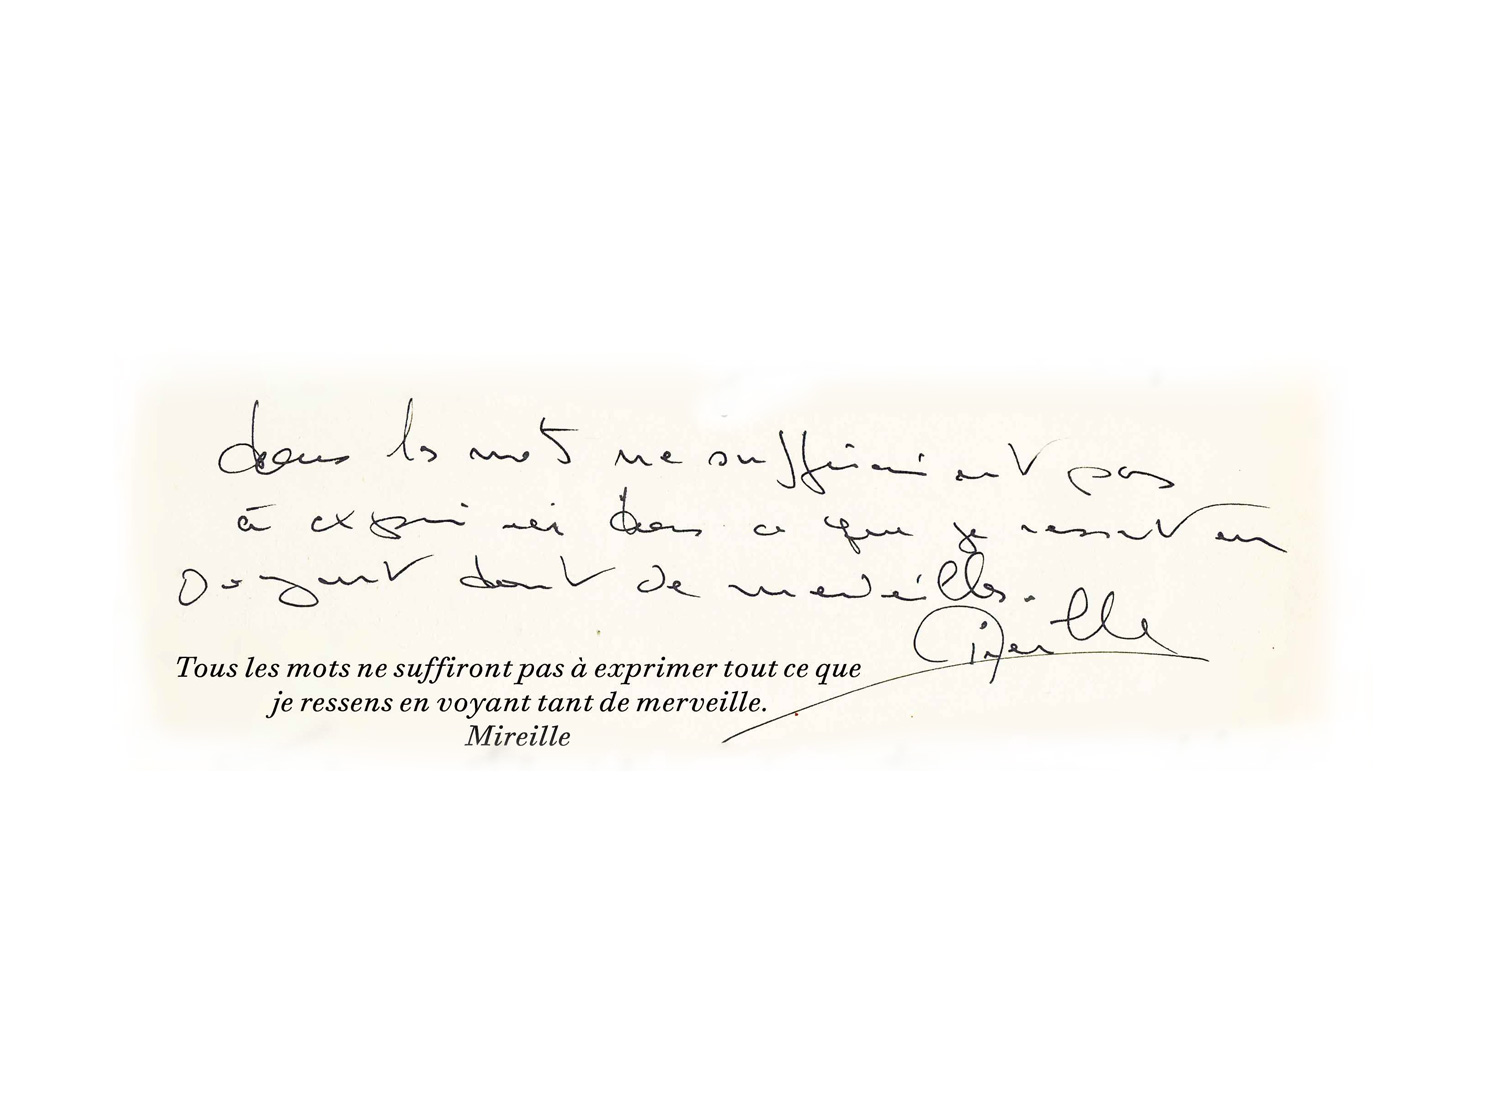 tous les mots ne suffiraient pas
à exprimer tous ce que je ressent en
voyant tant de merveilles.
Mireille
Tous les mots ne suffiront pas à exprimer tout ce que
je ressens en voyant tant de merveille.
Mireille